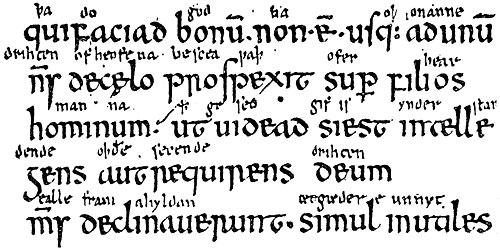 þa do god na oþ
qui faciad bonū · non · ē · usq: ad unū
drihten of heofe na ofer bear
dn̄s de cęlo prospexit sup filios
man na ꝥ ge seo gif is under stan
hominum · ut uidead si est intelle
dende oððe secende drihten
gens aut requirens deum
ealle fram ahyldon ætgædere unnyt
om̄s declinauerunt · simul inutiles